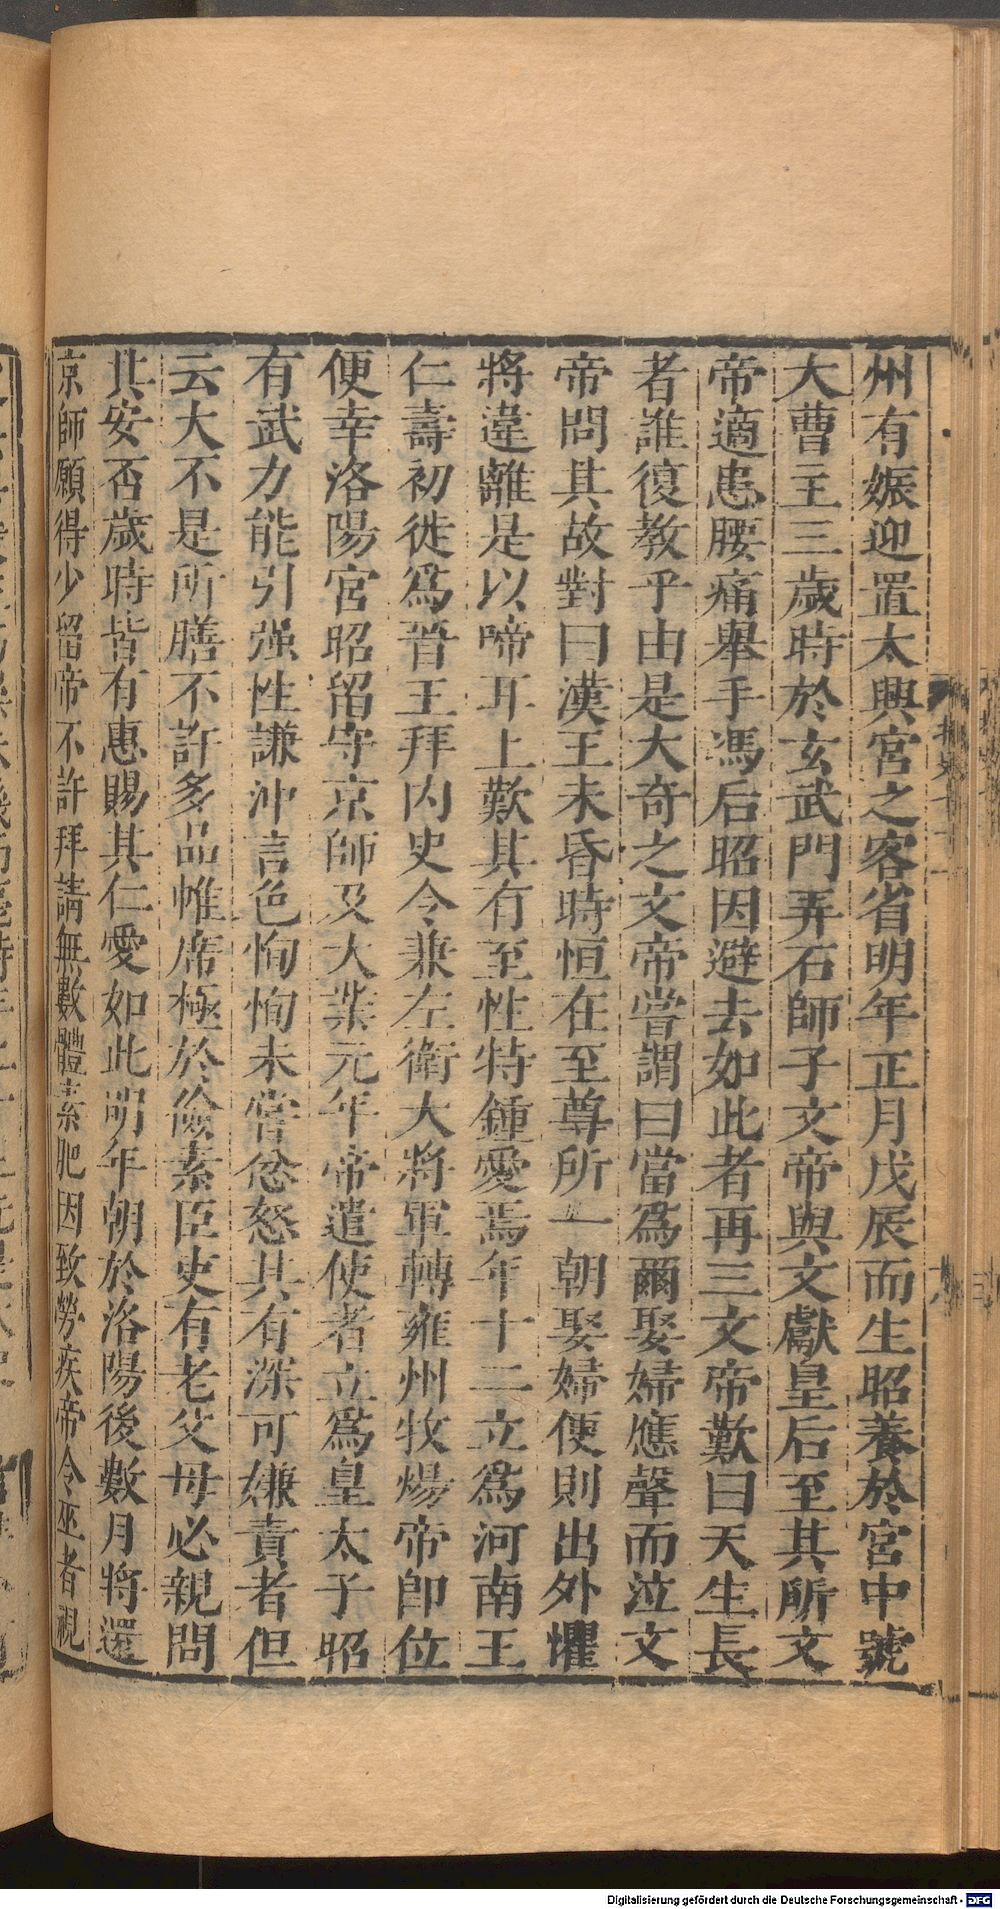 州有娠迎置太興宮之客省明年正月戊辰而生昭養於宮中號
大曹王三歲時於玄武門弄石師子文帝與文獻皇后至其所文
帝適患腰痛舉手馮后昭因避去如此者再三文帝歎曰天生長
者誰復教乎由是大奇之文帝嘗謂曰當爲爾娶婦應聲而泣文
帝問其故對曰漢王未昏時恒在至尊所一朝娶婦便則出外懼
將違離是以啼耳上歎其有至性特鍾愛焉年十二立爲河南王
仁壽初徙爲晉王拜內史令兼左衛大將軍轉雍州牧煬帝卽位
便幸洛陽宮昭留守京師及大業元年帝遣使者立爲皇太子昭
有武力能引强性謙沖言色恂恂未嘗忿怒其有深可嫌責者但
云大不是所膳不許多品帷席極於儉素臣吏有老父母必親問
其安否歲時皆有惠賜其仁愛如此明年朝於洛陽後數月將還
京師願得少留帝不許拜請無數體素肥因致勞疾帝令巫者視
Digitalisierung gefördert durch die Deutsche Forschungsgemeinschaft - DFG